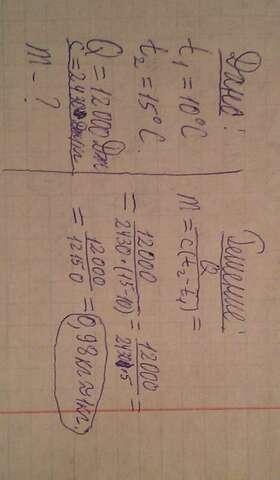 Дано:
t₁ = 10°C
t₂ = 15°C.
Q = 12 000 Дж
m - ?
Решение:
m = Q / c(t₂ - t₁) =
= 12000 / 2430·(15-10) = 12000 / 2430·5 =
= 12000 / 12150 = 0,98кг ≈ 1кг.